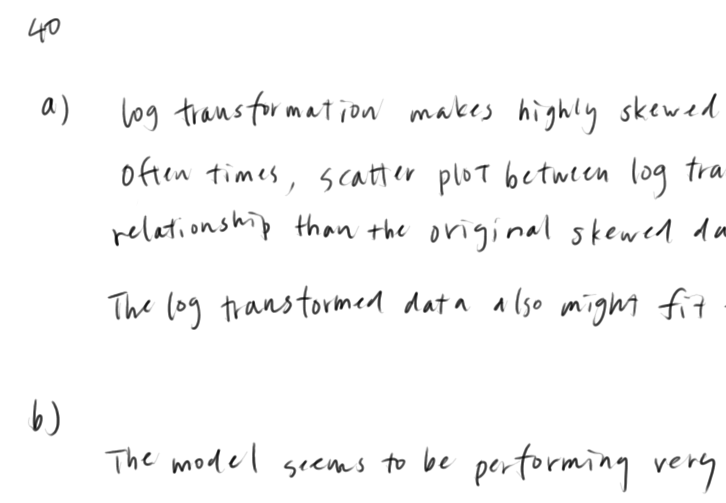 40
a) log transformation makes highly skewed
Often times, scatter plot between log tra
relationship than the original skewed da
The log transformed data also might fit
b)
The model seems to be performing very